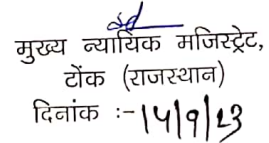 मुख्य न्यायिक मजिस्ट्रेट,
टोंक (राजस्थान)
दिनांक :-14/9/23